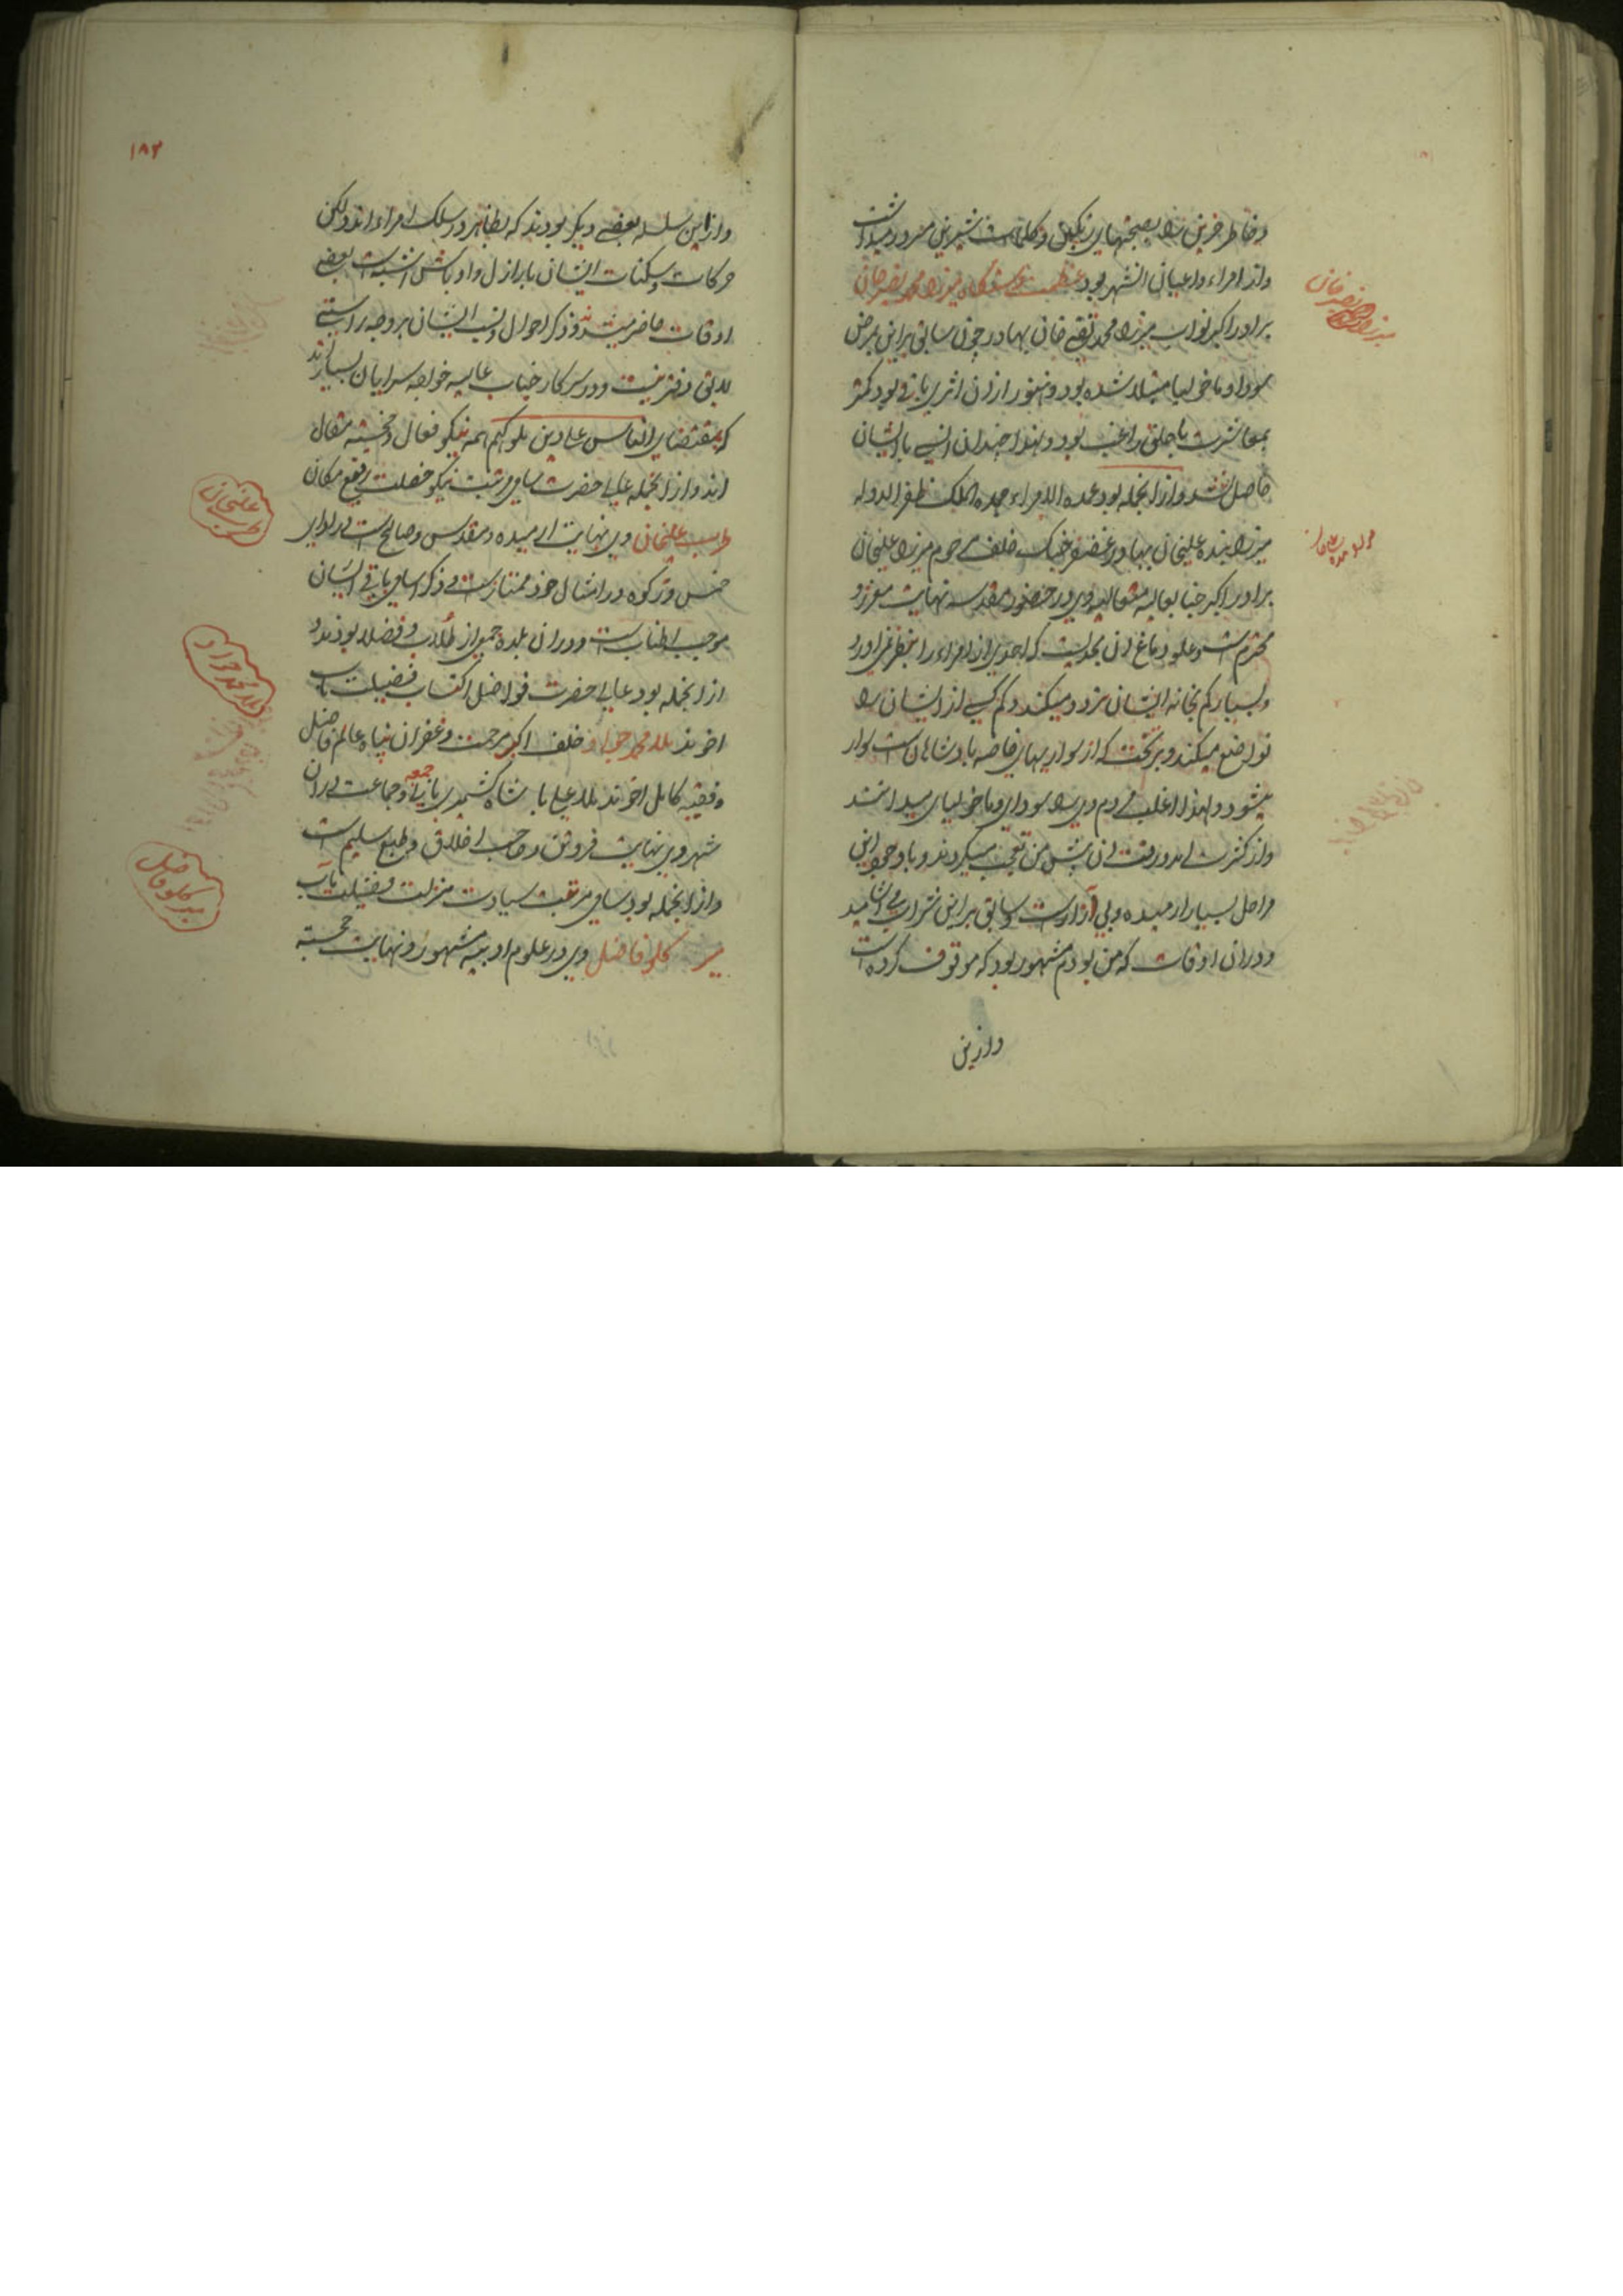 و خاطر حزین را بصحبتهای رنگین و کلمات شیرین مسرور میداشت
و از امراء و اعیان انشهر بود عظمت دستگاه میرزا محمد نصیر خان
میرزا محمد نصیر خان
برادر اکبر نواب میرزا محمد تقی خان بهادر چون سابق براین بمرض
سودا و ماخولیا مبتلا شده بود و هنوز از ان اثری باقی بود کمتر
بمعاشرت با خلق راغب بود و لهذا چندان انسی با ایشان
حاصل نشد و از انجمله بود عمده الامراء عمده الملک ظفر الدوله
میرزا بنده علیخان بهادر غضنفر جنک خلف مرحوم میرزا علیخان
برادر اکبر جناب عالیه متعالیه وی در حضور مقدسه نهایت معزز و
محترم است و علو دماغ ان بحدیست که احدی از امراء را بنظر نمی اورد
و بسیار کم بخانه ایشان تردد میکند و کم کسی از ایشان را
تواضع میکند و بر تخت که از سواریهای خاصه پادشاهان است سوار
میشود و لهذا اغلب مردم وی را سودای و ماخولیای میدانند
و از کثرت امد و رفت ان پیش من تعجب میکردند و با وجود این
مراحل بسیار ارمیده و بی ازار است و سابق براین شراب می اشامید
و در ان اوقات که من بودم مشهور بود که موقوف کرده است
و ازین
۱۸۲
و از این سلسله بعضی دیگر بودند که بظاهر در سلک امراء اند و لکن
حرکات و سکنات ایشان با رازل و اوباش اشبه است بعضی
اوقات حاضر میشدند و ذکر احوال و نسب ایشان بر وجه راستی
لایق دفتر نیست و در سرکار جناب عالیه خواجه سرایان بسیارند
که بمقتضای الناس علی دین ملوکهم همه نیکو فعال و خجسته مقال
اند و از انجمله عالی حضرت سامی مرتبت نیکو خصلت رفیع مکان
طرب علیخان وی نهایت ارمیده و مقدس و صالح است در ادای
خمس و زکوه در امثال خود ممتاز است و ذکر اسامی باقی ایشان
موجب اطناب است و در ان بلده جمعی از طلاب و فضلا بودند و
ملا محمد جواد
از انجمله بود عالی حضرت فواضل اکتساب فضیلت ماب
اخوند ملا محمد جواد خلف اکبر مرحمت و غفران پناه عالم فاضل
و فقیه کامل اخوند ملا علی پادشاه کشمیری بانی جمعه و جماعت در ان
شهر وی نهایت فروتن و صاحب اخلاق و طبع سلیم است
و از انجمله بود سامی مرتبت سیادت منزلت و فضیلت ماب
میر کلو فاضل
میر کلو فاضل وی در علوم ادبیه مشهور و نهایت خجسته